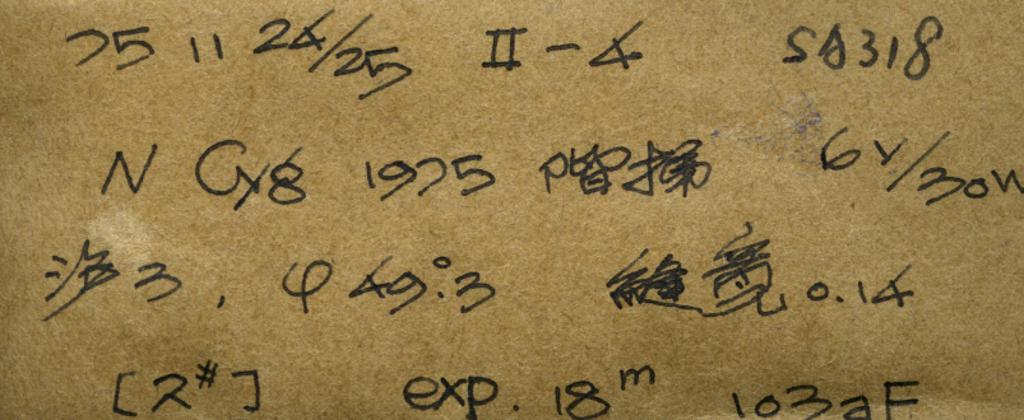 75 11 24/25 II-4 SA318
N Cyg 1975 階梯 6V/30W
滤3, φ 49°.3 縫寬 0.14
[2#] exp. 18m 103aF